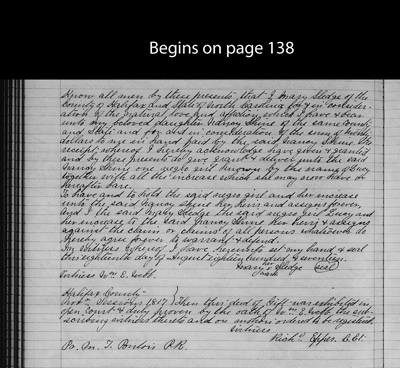 Begins on page 138
Know all men by these presents that I Mary Sledge of the
County of Halifax and State of North Carolina for & in consider-
ation of the natural love and affection which I have & bear
unto my beloved daughter Nancy Shins of the same County
and State and for and in consideration of the sum of twenty
dollars to me in hand paid by the said Nancy Shins the
receipt whereof I hereby acknowledge have given & granted
and by these presents do give grant & deliver unto the said
Nancy Shins one negro girl known by the name of Lucy
together with all the increase which she may now have or
hereafter have.
To have and to hold the said negro girl and her increase
unto the said Nancy Shins her heirs and assigns forever,
And I the said Mary Sledge the said negro girl Lucy and
her increase to the said Nancy Shins her heirs & assigns
against the claim or claims of all persons whatever do
hereby agree forever to warrant & defend.
In witness whereof I have hereunto set my hand & seal
this eighteenth day of August eighteen hundred & seventeen.
her
Mary Sledge seal
mark
Witness Wm. E. Webb.
Halifax County
Sessions 1817 } Then this deed of Gift was exhibited in
open Court & duly proven by the oath of Wm. E. Webb, the sub-
scribing witness thereto and on motion ordered to be registered.
Witness
Richd. Eppes. C.Ct.
P.R.